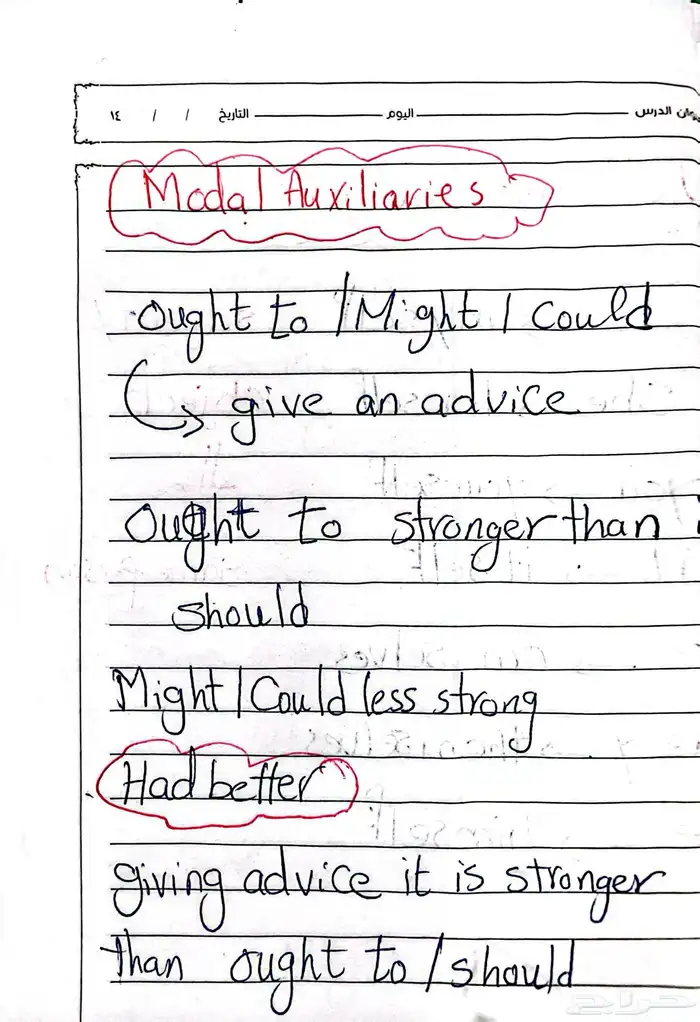 الدرس اليوم التاريخ / / ١٤
Modal Auxiliaries
Ought to / Might / Could
↳ give an advice
Ought to stronger than
should
Might / Could less strong
Had better
giving advice it is stronger
than ought to / should
حراج